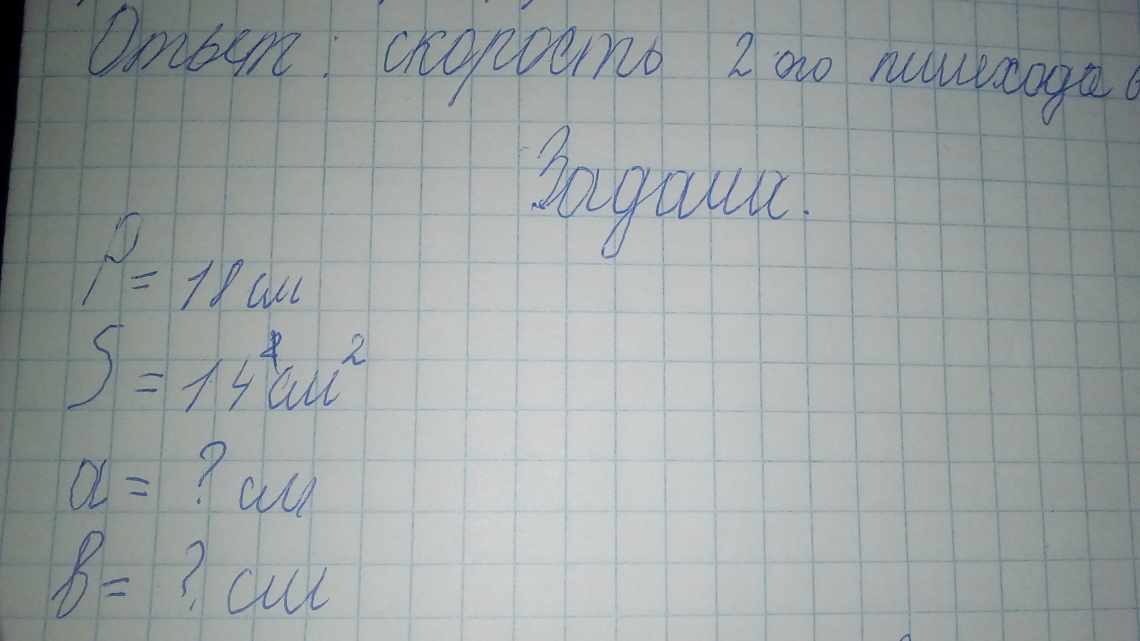 Ответ: скорость 2 ого пишехода
Задача.
P = 18 см
S = 14 см²
a = ? см
в = ? см